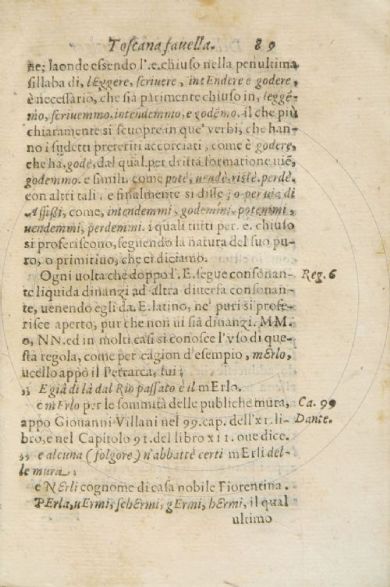 Toscana fauella. 89
ne; laonde essendo l'.e.chiuso nella penultima
sillaba di, lEggere, scriuere, intEndere e godere,
è necessario, che sia parimente chiuso in, leggé-
mo, scriuemmo. intendemmo, e godémo. il che più
chiaramente si scuopre in que' verbi, che han-
no i sudetti preteriti accorciati, come è godere,
che ha, godè. dal qual, per dritta formatione uiē,
godemmo. e simili. come poté, uendè. ristè. perdè.
con altri tali. e finalmente si disse; o per uia di
Affissi, come, intendemmi, godemmi, potemmi,
uendemmi, perdemmi. i quali tutti per. e. chiuso
si proferiscono, seguendo la natura del suo pu-
ro, o primitiuo, che ci diciamo.
Ogni uolta che doppo l'. E. segue consonan- Reg. 6
te liquida dinanzi ad altra diuersa consonan-
te, uenendo egli da. E. latino, ne' puri si profe-
risce aperto, pur che non ui sia dinanzi. MM.
o, NN. ed in molti casi si conosce l'vso di que-
sta regola, come per cagion d'esempio, mErlo,
ucello appo il Petrarca, lui;
,, E già di là dal Rio passato è il mErlo.
e mErlo per le sommità delle publiche mura, Ca. 99
appo Giouanni Villani nel 99. cap. dell'xi. li- Dante.
bro, e nel Capitolo 91. del libro xii. oue dice.
,, e alcuna (folgore) n'abbatté certi mErli del-
le mura.
e NErli cognome di casa nobile Fiorentina.
PErla, uErmi, schErmi, gErmi, hErmi, il qual
ultimo